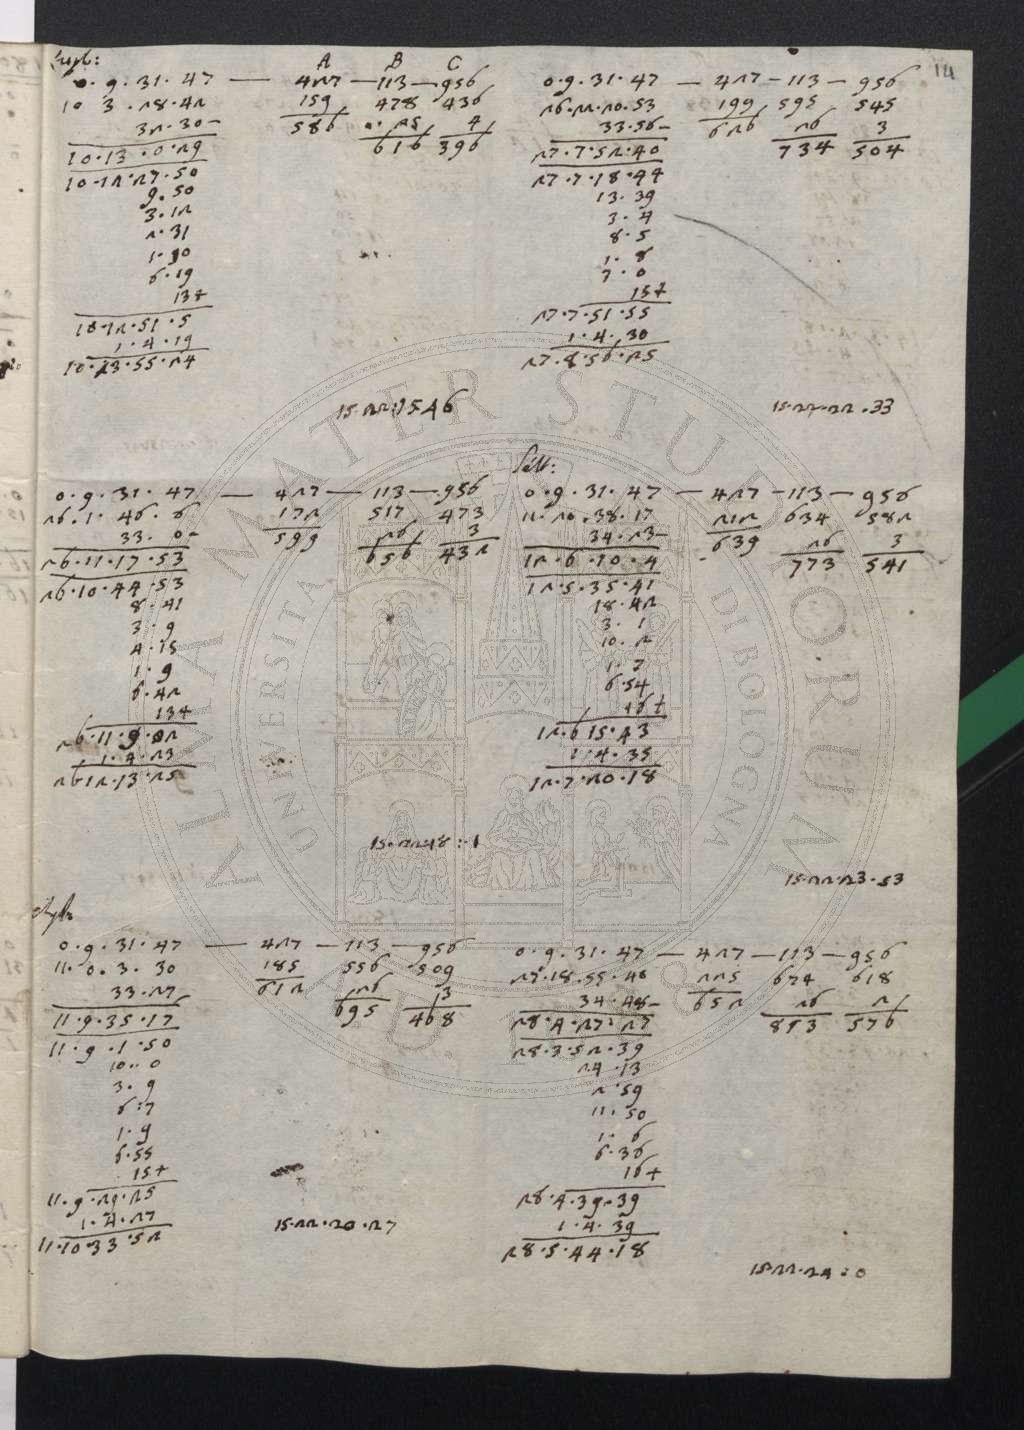 A B C
0·9·31·47 — 427 — 113 — 956
10 3·28·42 159 478 436
32·30- 586 25 4
10·13·0·29 616 396
10·12·27·50
9·50
3·12
2·31
1·10
6·19
13+
10·12·51·5
1·4·19
10·13·55·24
0·9·31·47 — 427 — 113 — 956
26·22·20·53 199 595 545
33·56- 626 26 3
27·7·52·40 734 504
27·7·18·44
13·39
3·4
8·5
1·8
7·0
13+
27·7·51·55
1·4·30
27·8·56·25
14
15·22·15 46
15·22·22·33
0·9·31·47 — 427 — 113 — 956
26·1·46·6 172 517 473
33·0- 599 26 3
26·11·17·53 656 432
26·10·44·53
8·41
3·9
4·15
1·9
6·42
13+
26·11·9·22
1·4·23
26 12·13·25
0·9·31·47 — 427 — 113 — 956
11·20·38·17 212 634 582
34·23- 639 26 3
12·6·10·4 773 541
12·5·35·41
18·42
3·1
10·2
1·7
6·54
16+
12·6 15·43
1·4·35
12·7·20·18
15·22 18:·1
15·22·23·53
0·9·31·47 — 427 — 113 — 956
11·0·3·30 185 556 509
33·27 612 26 3
11·9·35·17 695 468
11·9·1·50
10··0
3·9
6·7
1·9
6·55
15+
11·9·29·25
1·4·27
11·10·33·52
0·9·31·47 — 427 — 113 — 956
27·18·55·40 225 674 618
34·48- 652 26 2
28·4·27·27 813 576
28·3·52·39
24·13
2·59
11·50
1·6
6·36
16+
28·4·39·39
1·4·39
28·5·44·18
15·22·20·27
15·22·24:0
ALMA MATER STUDIORUM
UNIVERSITÀ DI BOLOGNA